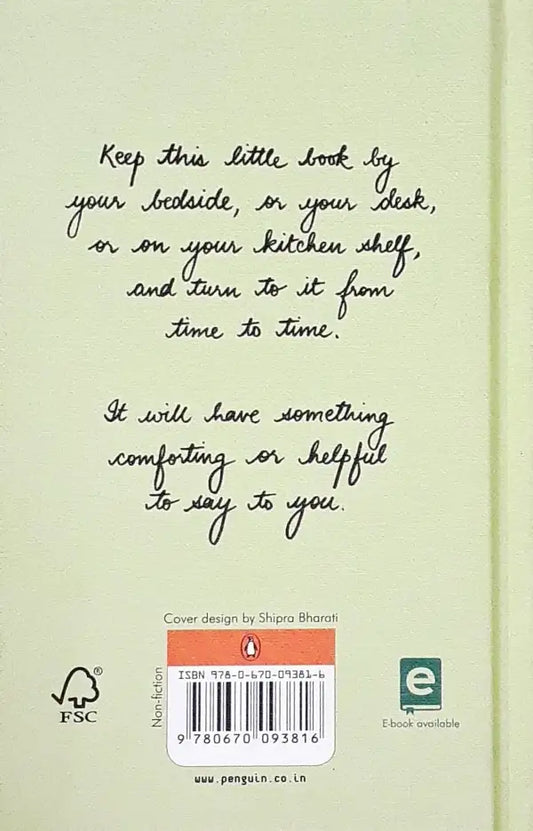 Keep this little book by
your bedside, or your desk,
or on your kitchen shelf,
and turn to it from
time to time.
It will have something
comforting or helpful
to say to you.
Cover design by Shipra Bharati
ISBN 978-0-670-09381-6
Non-fiction
9 780670 093816
www.penguin.co.in
®
FSC
e
E-book available